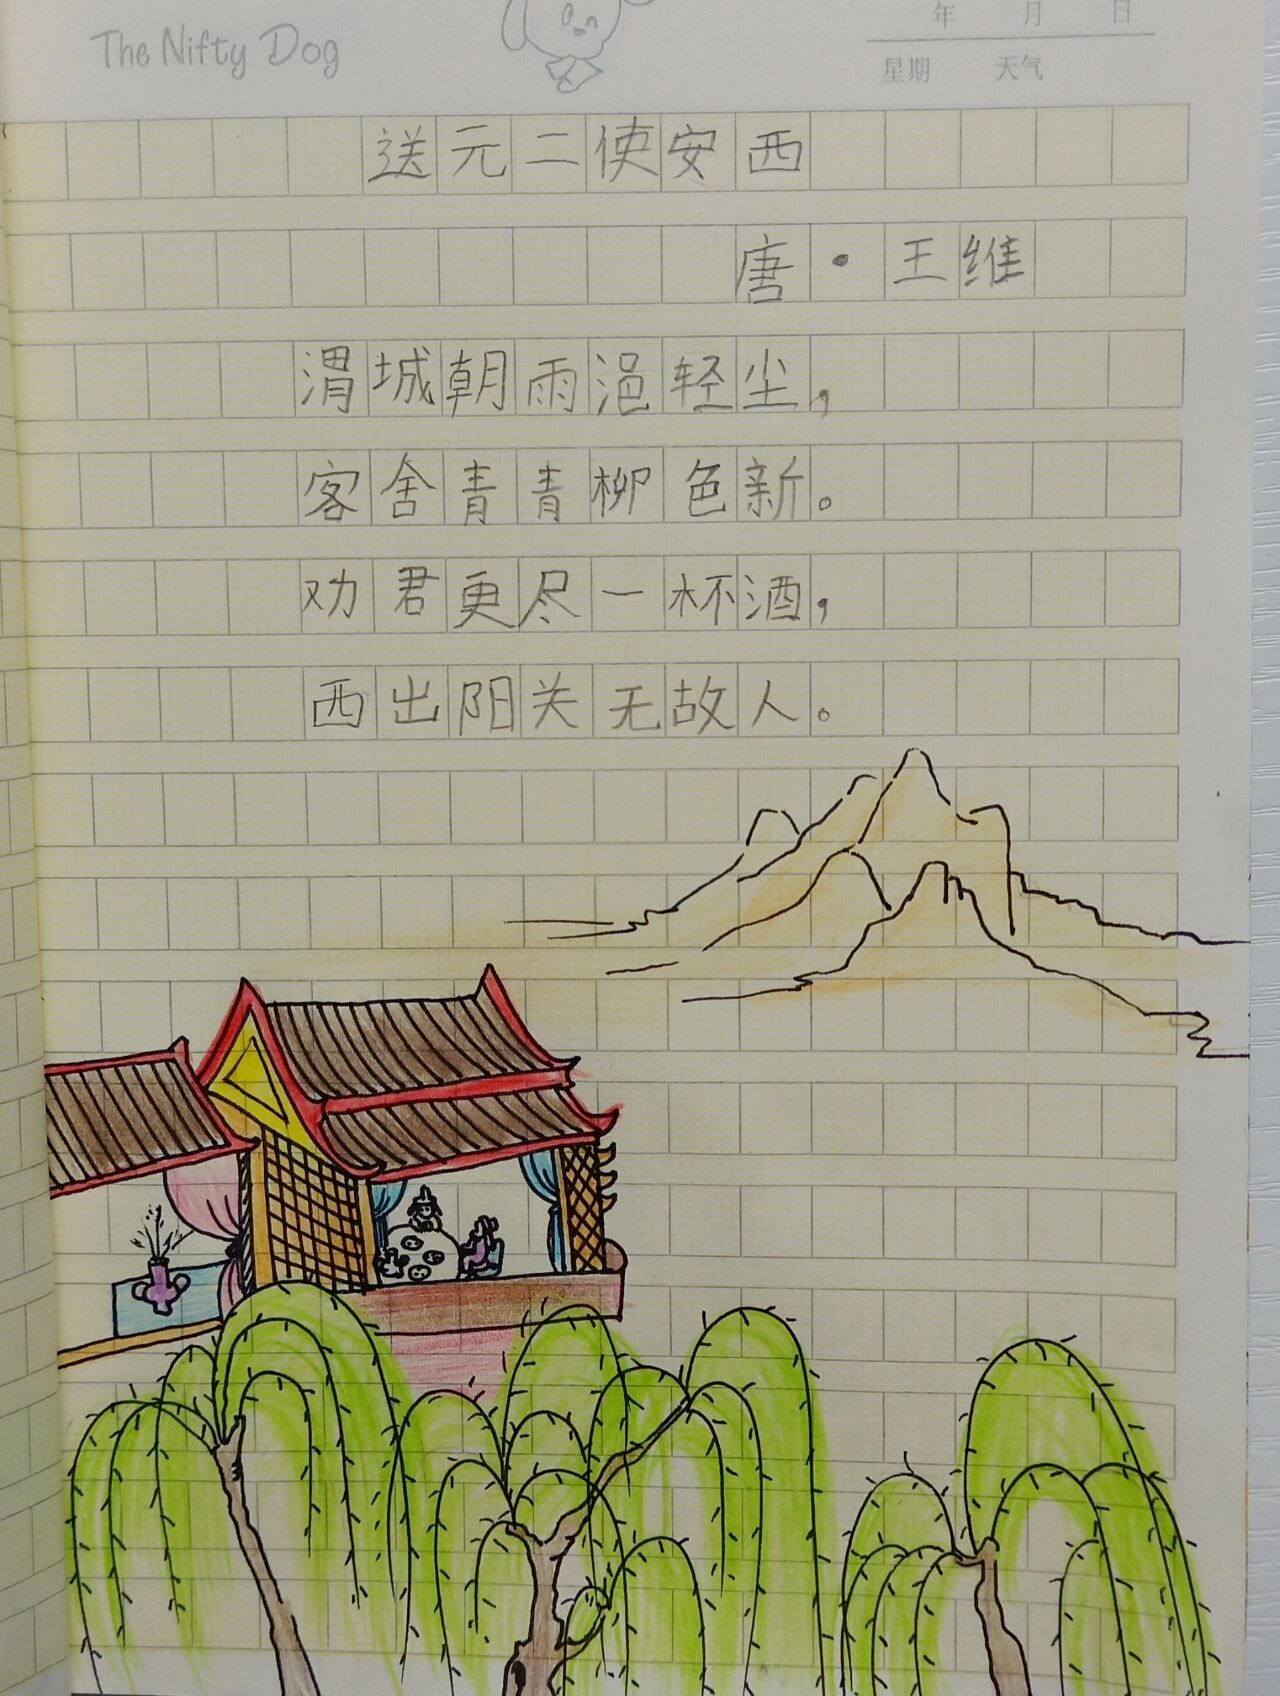 The Nifty Dog
年 月 日
星期 天气
送元二使安西
唐·王维
渭城朝雨浥轻尘，
客舍青青柳色新。
劝君更尽一杯酒，
西出阳关无故人。